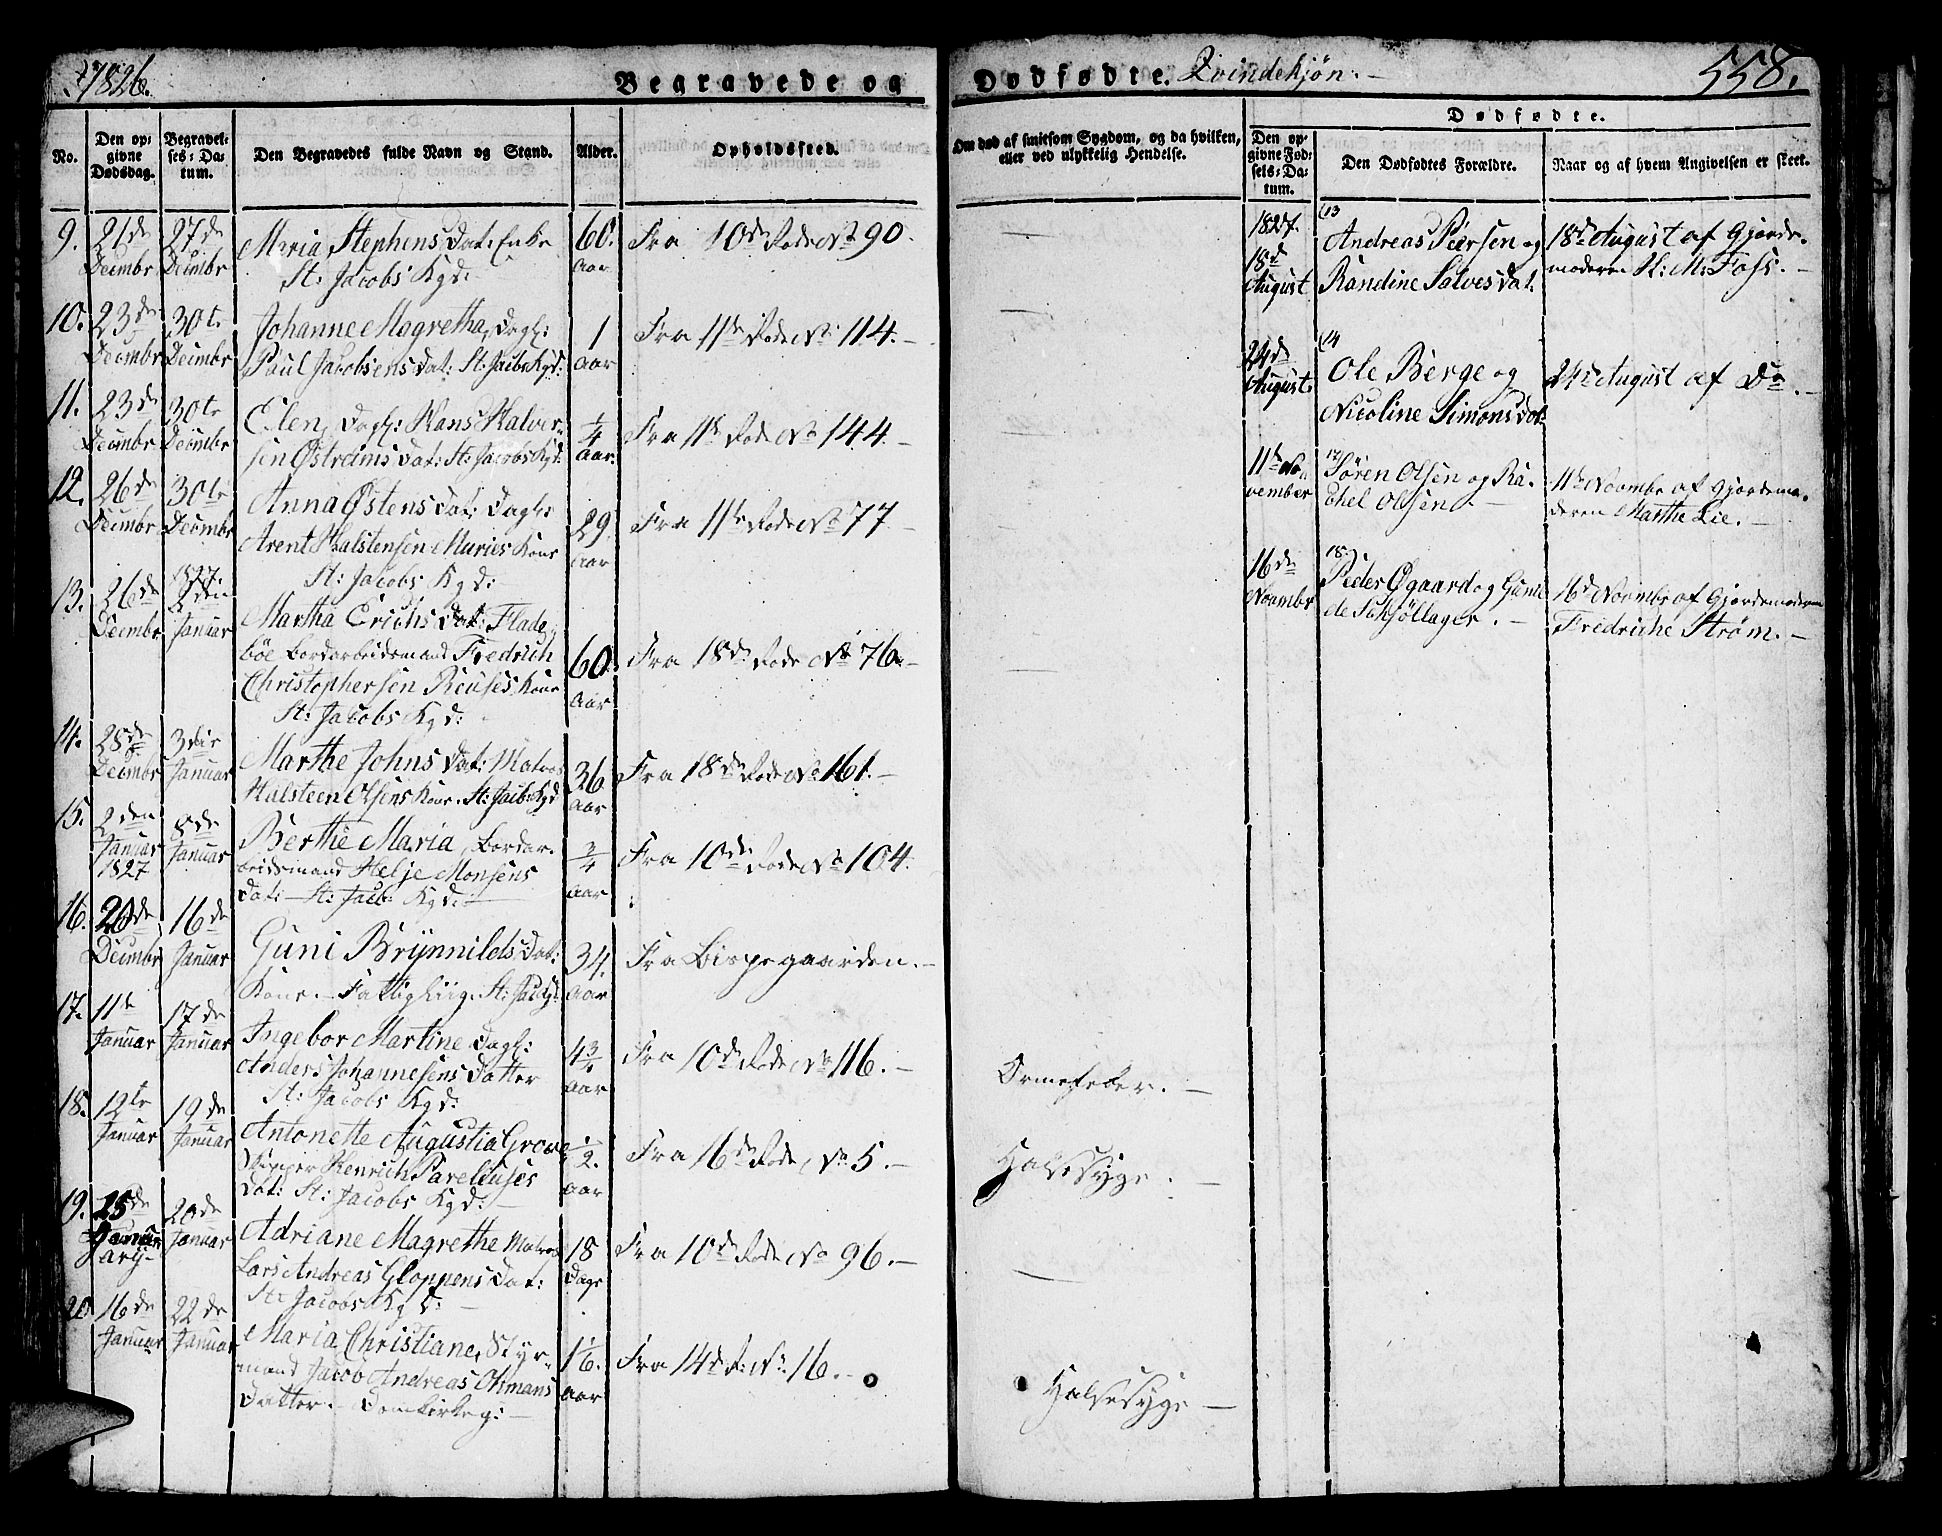 1826.
Begravede og
Dødfødte. Qvindekjøn. —
558.
No.
Den op-
givne
Dødsdag.
Begravel-
ses-Da-
tum.
Den Begravedes fulde Navn og Stand.
Alder.
Opholdssted.
Om død af smitsom Sygdom, og da hvilken,
eller ved ulykkelig Hendelse.
Dødfødte.
Den op-
givne Fød-
sels-Da-
tum.
Den Dødfødtes Forældre.
Naar og af hvem Angivelsen er skeet.
9. 21de Decembr 27de Decembr
Maria Stephens Dat: Enke
St: Jacobs Kgd:
60. Aar
Fra 10de Rode No 90.
10. 23de Decembr 30te Decembr
Johanne Magretha, Dagl:
Paul Jacobsens Dat: St: Jacobs Kgd:
1 Aar
Fra 11te Rode No 114. —
11. 23de Decembr 30te Decembr
Elen, Dagl: Hans Halver-
sen Østreims Dat: St: Jacobs Kgd:
1/4 Aar.
Fra 11te Rode No 144. —
12. 26de Decembr 30te Decembr
Anna Østens Dat: Dagl:
Arent Halstensen Muries Kone
St: Jacobs Kgd:
29 Aar
Fra 11te Rode No 77. —
13. 26de Decembr 1827 2den Januar
Martha Erichs Dat: Flade-
böe Bordarbeidsmand Fredrich
Christophersen Reuses Kone
St: Jacobs Kgd:
60. Aar
Fra 18de Rode No 76. —
14. 28de Decembr 3die Januar
Marthe Johns Dat: Matros
Halsteen Olsens Kone. St: Jacb: Kgd
36 Aar
Fra 18de Rode No 161. —
15. 2den Januar 1827 8de Januar
Berthe Maria, Bordar-
beidsmand Helje Monsens
Dat: — St: Jacb: Kgd: —
3/4 Aar
Fra 10de Rode No 104.
16. 20de Decembr 16de Januar
Guni Brynnilds Dat:
Kone. — Fattig Liig. St: Jac Kgd:
34. Aar
Fra Bispegaarden. —
17. 11te Januar 17de Januar
Ingebor Martine Dagl:
Anders Johannesens Datter
St: Jacobs Kgd:
4 3/4 Aar
Fra 10de Rode No 116. —
Ormefeber. —
18. 12te Januar 19de Januar
Antonette Augustia Grove
Skipper Henrich Pareliuses
Dat: St: Jacobs Kgd: —
1/2. Aar
Fra 16de Rode, No 5. —
Halsesyge. —
19. 15de Januar 20de Januar
Adriane Magrethe Matros
Lars Andreas Gloppens Dat:
St: Jacobs Kgd: —
18 Dage
Fra 10de Rode No 96. —
20 16de Januar 22de Januar
Maria Christiane, Styr-
mand Jacob Andreas Ohmans
Datter. — Domkirkeg: —
1 1/6. Aar
Fra 14de R: No 16. —
Halsesyge —
1827.
18de August
13
Andreas Peersen og
Randine Salves Dat.
18de August af Gjorde-
moderen H: M: Foss. —
24de August.
14
Ole Berge og
Nicoline Simons Dat.
24de August af Do. —
11te No-
vember
17
Søren Olsen og Ra-
chel Olsen. —
11te Novembr af Gjordemo-
deren Marthe Lie. —
16de Novembr
18.
Peder Øgaard og Guni-
de Sekjöllager. —
16de Novembr af Gjordemoderen
Fredriche Strøm. —